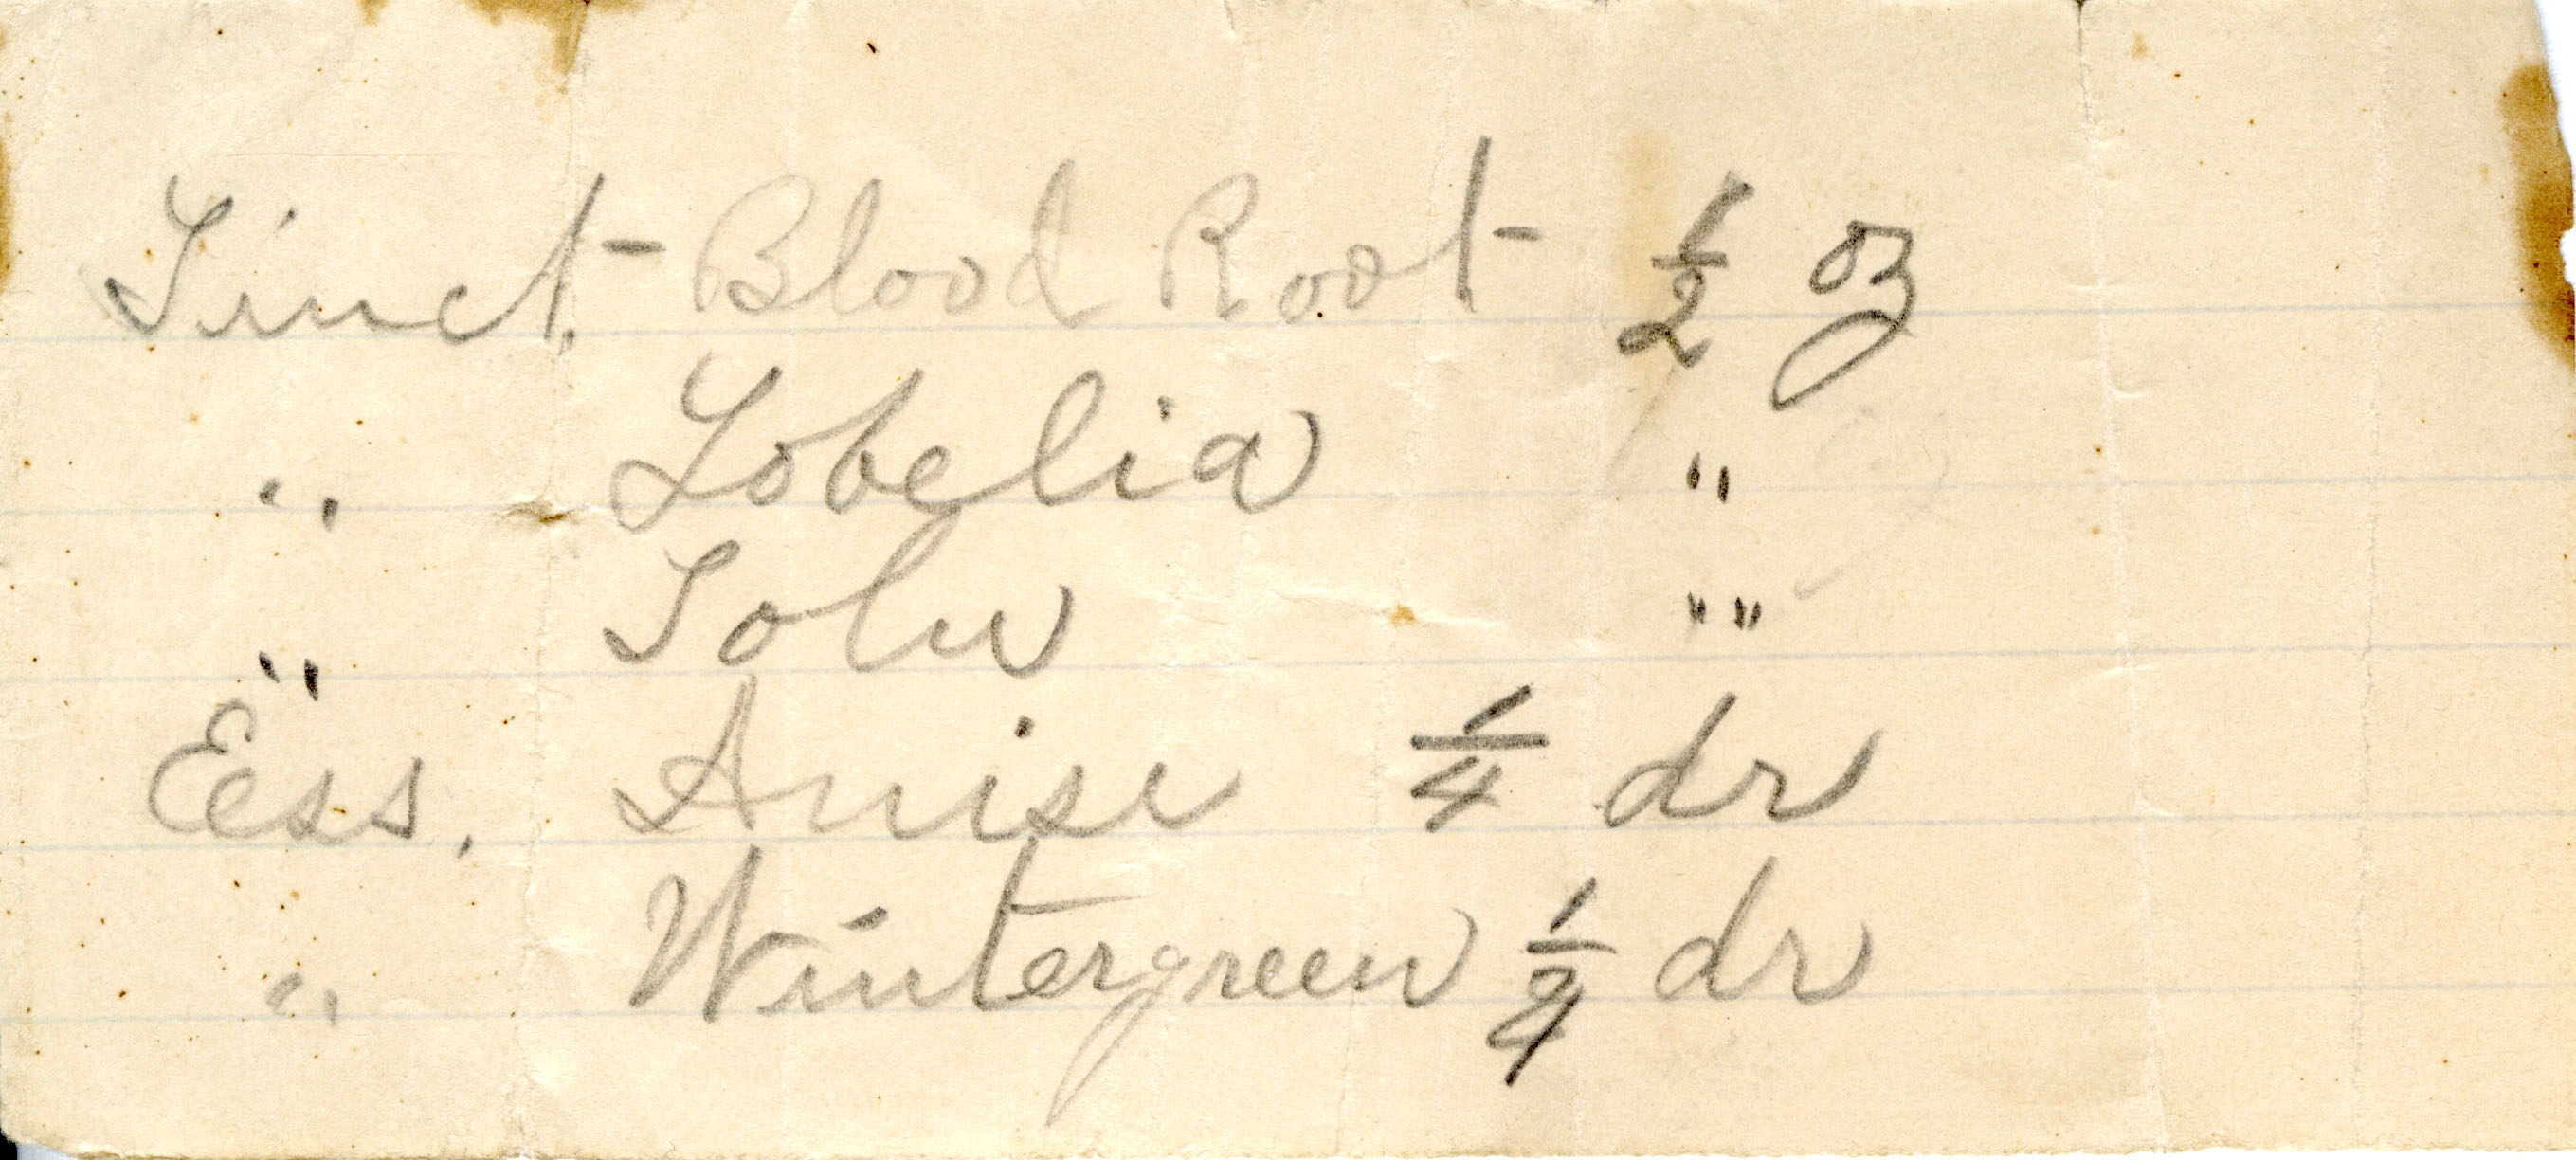 Tinct - Blood Root 1/2 oz
" Lobelia "
" Tolu " "
Ess. Anise 1/4 dr
" Wintergreen 1/4 dr